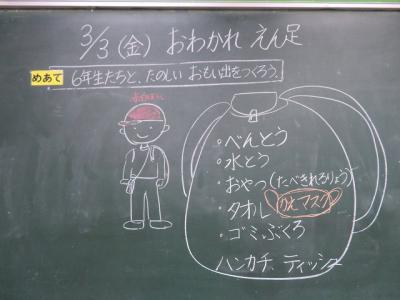 3/3(金) おわかれ えん足
めあて 6年生たちと、たのしい おもい出をつくろう。
・べんとう
・水とう
・おやつ(たべきれるりょう)
・タオル
・ゴミぶくろ
ハンカチ、ティッシュ